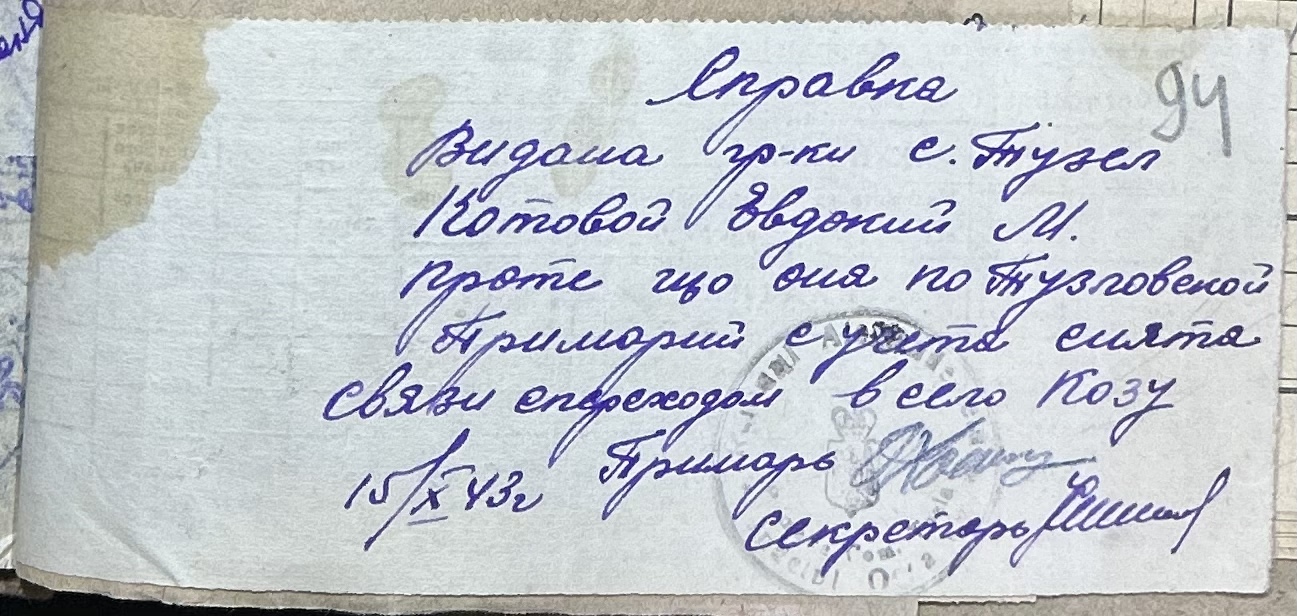 Справка
94
Видана гр-ки с. Тузел
Котовой Евдокий М.
проте що она по Тузловской
Примарий с учета снята
связи спереходом в село Козу
15/X 43г Примарь
секретарь